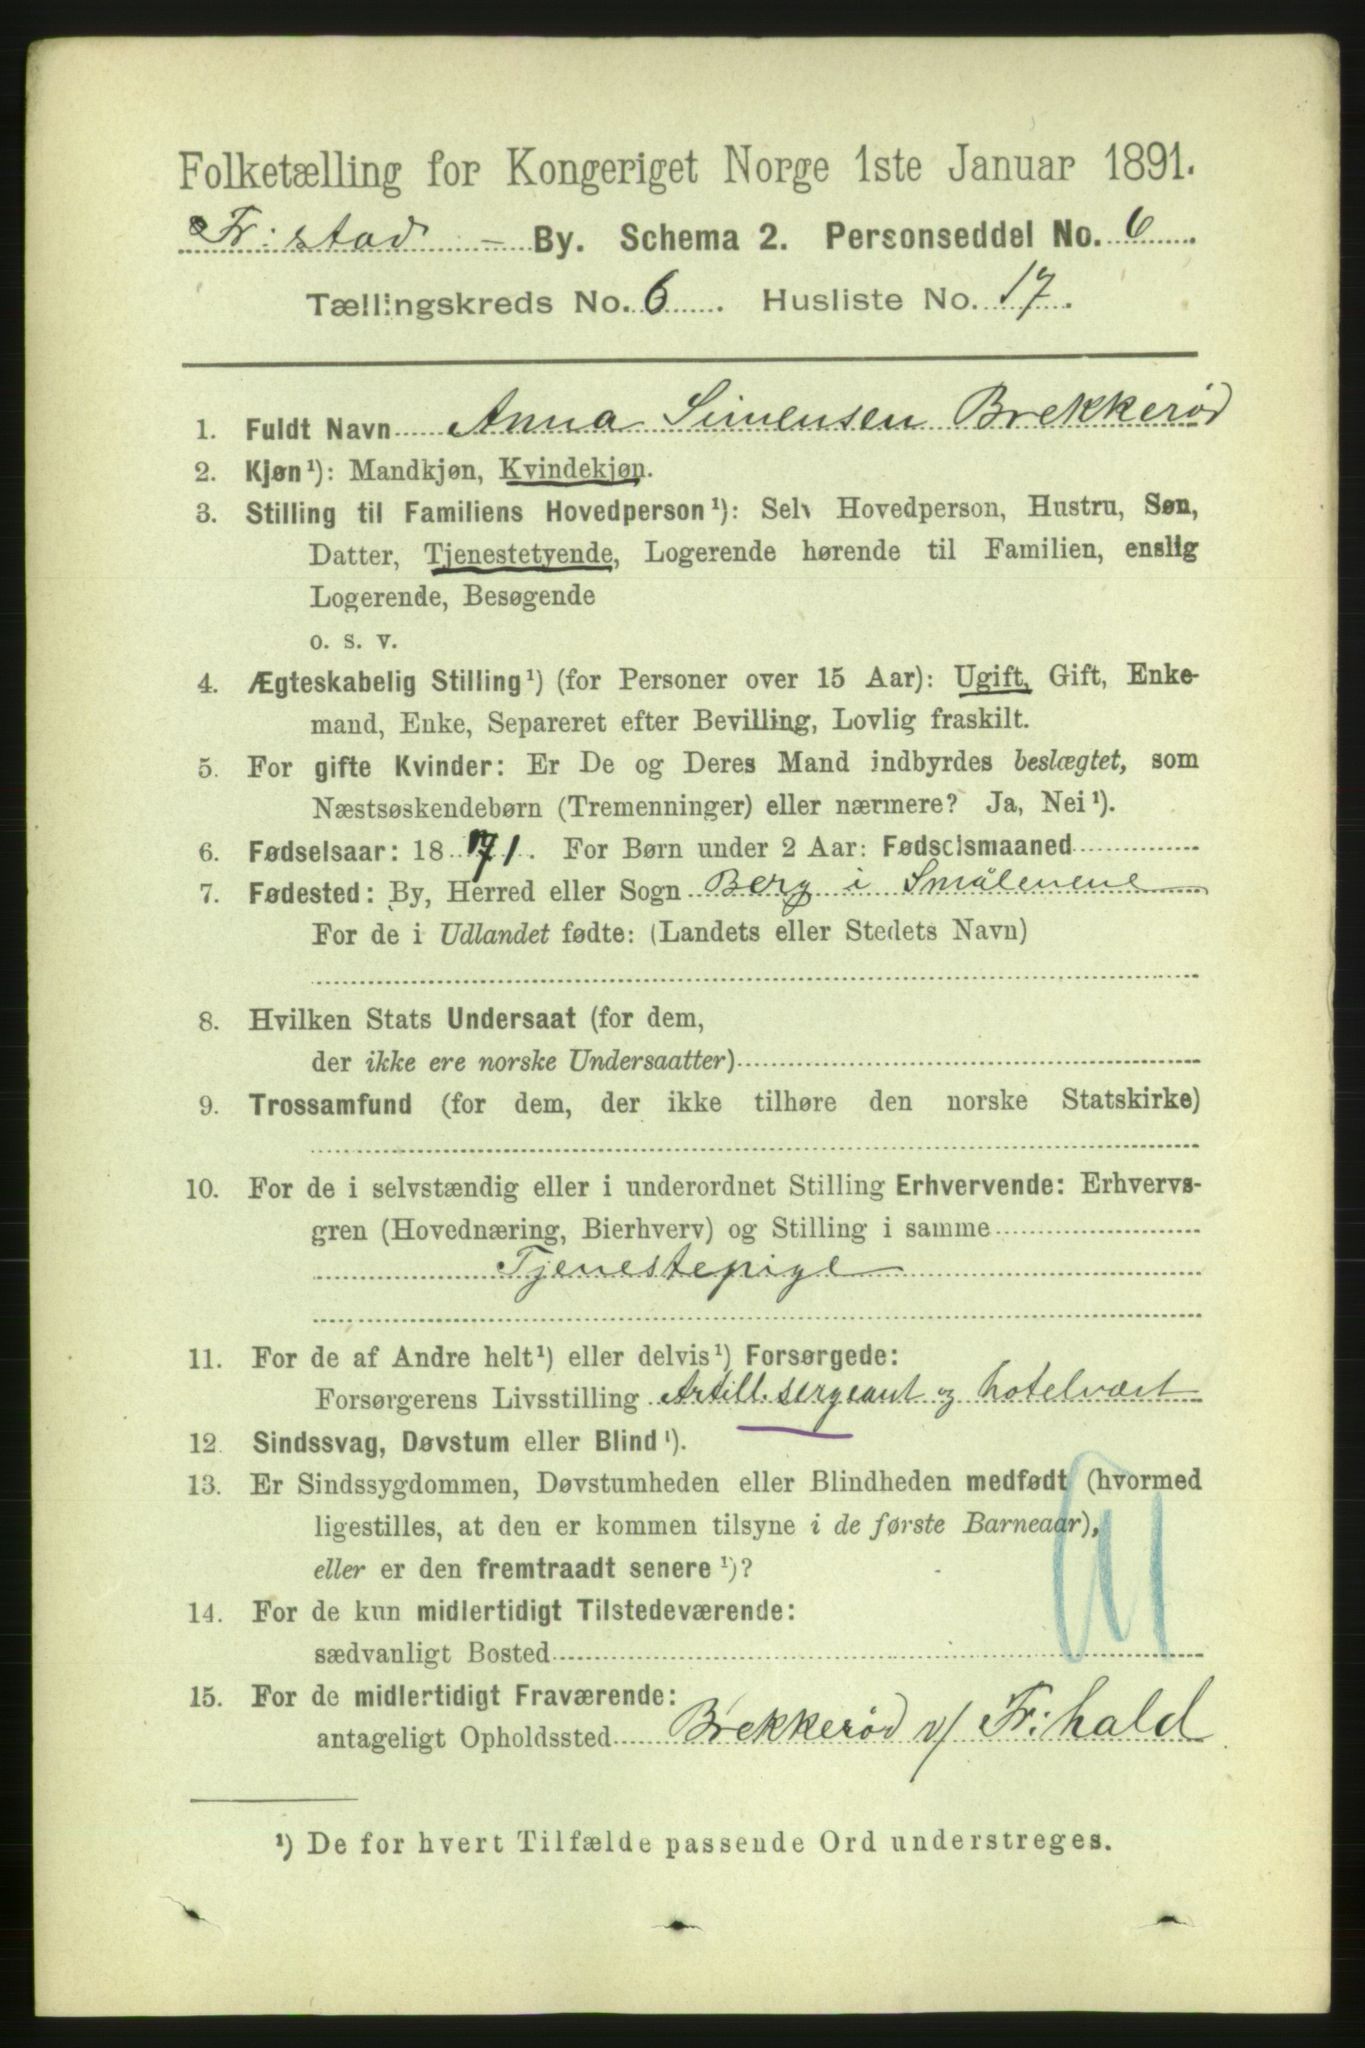 Folketælling for Kongeriget Norge 1ste Januar 1891.
Fr: stad - By. Schema 2. Personseddel No. 6
Tællingskreds No. 6. Husliste No. 17.
1. Fuldt Navn Anna Simensen Brekkerød
2. Kjøn¹): Mandkjøn, Kvindekjøn.
3. Stilling til Familiens Hovedperson¹): Selv Hovedperson, Hustru, Søn,
Datter, Tjenestetyende, Logerende hørende til Familien, enslig
Logerende, Besøgende
o. s. v.
4. Ægteskabelig Stilling¹) (for Personer over 15 Aar): Ugift, Gift, Enke-
mand, Enke, Separeret efter Bevilling, Lovlig fraskilt.
5. For gifte Kvinder: Er De og Deres Mand indbyrdes beslægtet, som
Næstsøskendebørn (Tremenninger) eller nærmere? Ja, Nei¹).
6. Fødselsaar: 1871. For Børn under 2 Aar: Fødselsmaaned
7. Fødested: By, Herred eller Sogn Berg i Smålenene
For de i Udlandet fødte: (Landets eller Stedets Navn)
8. Hvilken Stats Undersaat (for dem,
der ikke ere norske Undersaatter)
9. Trossamfund (for dem, der ikke tilhøre den norske Statskirke)
10. For de i selvstændig eller i underordnet Stilling Erhvervende: Erhvervs-
gren (Hovednæring, Bierhverv) og Stilling i samme
Tjenestepige
11. For de af Andre helt¹) eller delvis¹) Forsørgede:
Forsørgerens Livsstilling Artill. sergeant og hotelvært
12. Sindssvag, Døvstum eller Blind¹).
13. Er Sindssygdommen, Døvstumheden eller Blindheden medfødt (hvormed
ligestilles, at den er kommen tilsyne i de første Barneaar),
eller er den fremtraadt senere¹)?
14. For de kun midlertidigt Tilstedeværende:
sædvanligt Bosted
15. For de midlertidigt Fraværende:
antageligt Opholdssted Brekkerød v/ Fr: hald
¹) De for hvert Tilfælde passende Ord understreges.